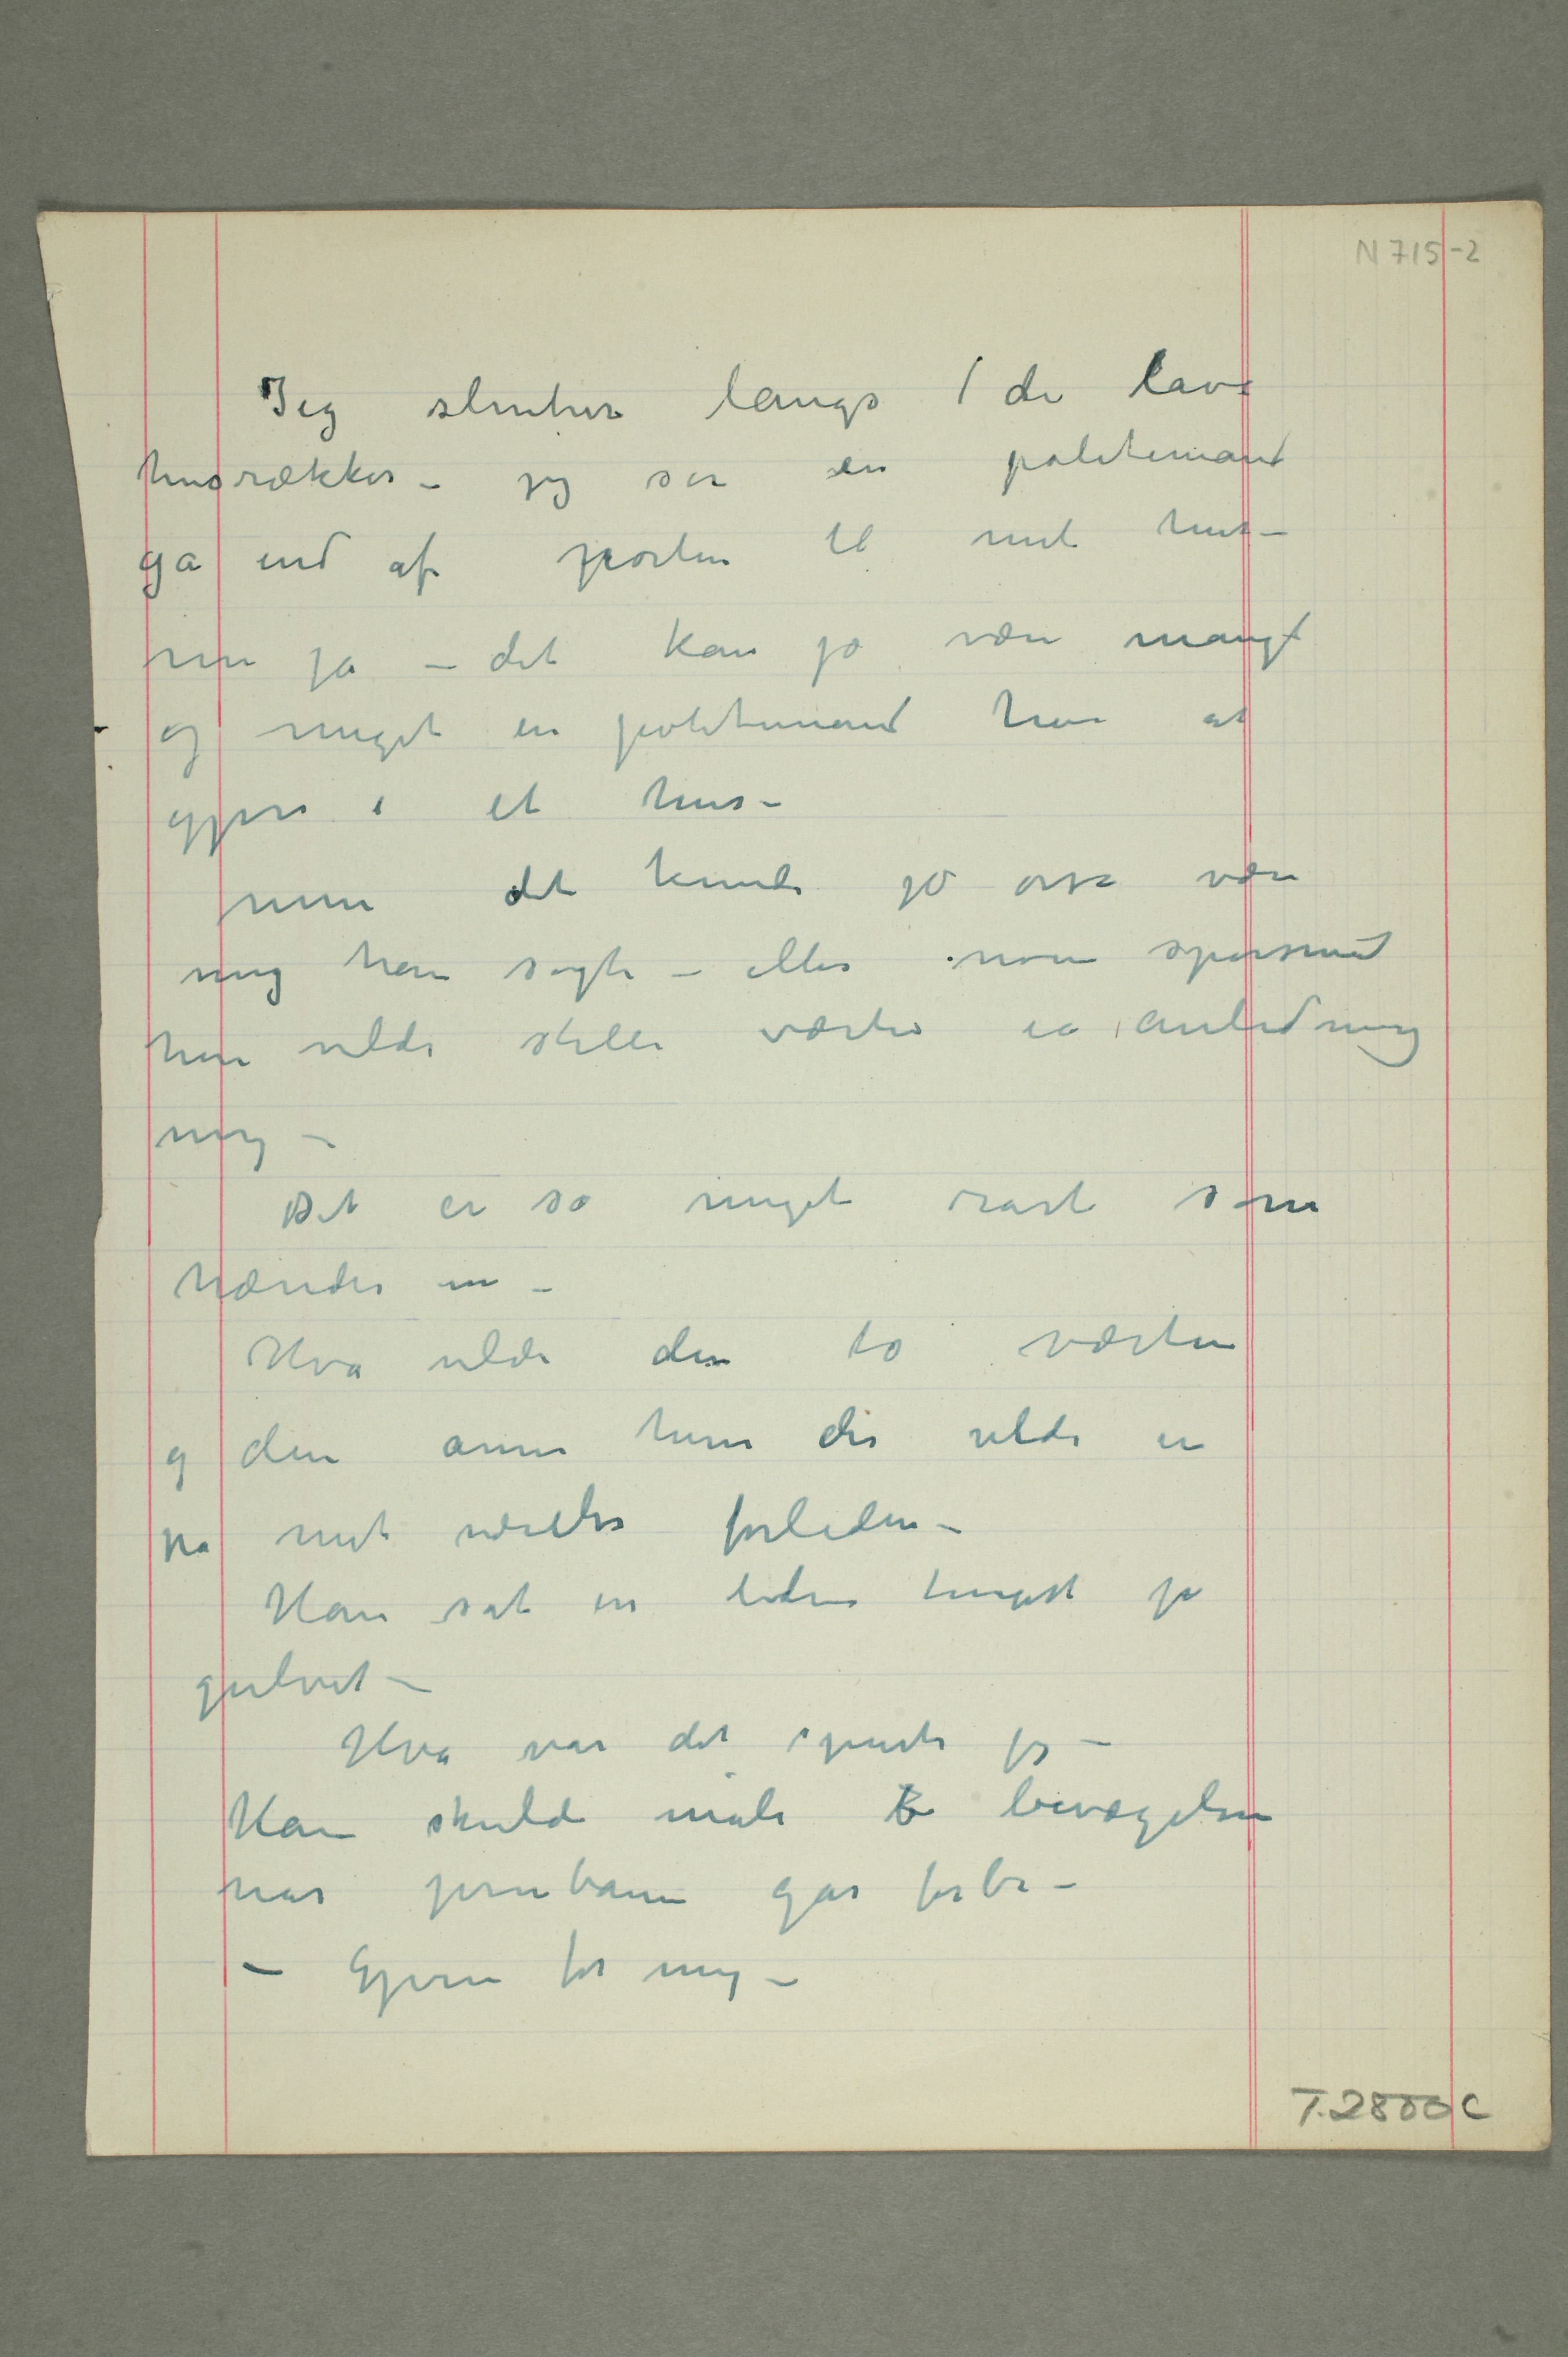 N 715-2
Jeg slentrer langs de lave
husrækker – jeg ser en politimand
gå ind af porten til mit hus –
nu ja – det kan jo være mangt
og meget en politimand har at
gjøre i et hus –
men det kunde jo også være
mig han søgte – eller noen spørsmål
han vilde stille værten ia anledning
mig –
Det er så meget rart som
hænder en –
Hva vilde den to værten
og den anne herre der vilde in
på mit værelse forleden –
Han sat en liden tingest på
gulvet –
Hva var det spurte jeg –
Han skulde måle bevægelsen
når jernbanen går forbi –
– Gjerne for mig –
T. 2800 C